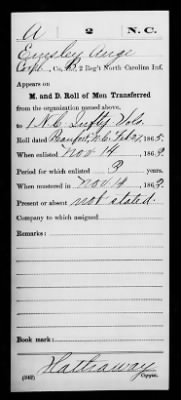 A 2 N.C.
Emsley Ange
Corpl., Co. , 2 Reg't North Carolina Inf.
Appears on
M. and D. Roll of Men Transferred
from the organization named above,
to 1 N.C. Inft'y Vols.
Roll dated Beaufort, N.C. Feb 1865.
When enlisted Nov 14, 1863.
Period for which enlisted 3 years.
When mustered in Nov 14, 1863.
Present or absent not stated.
Company to which assigned
Remarks:
Book mark:
Hathaway
(342) Copyist.